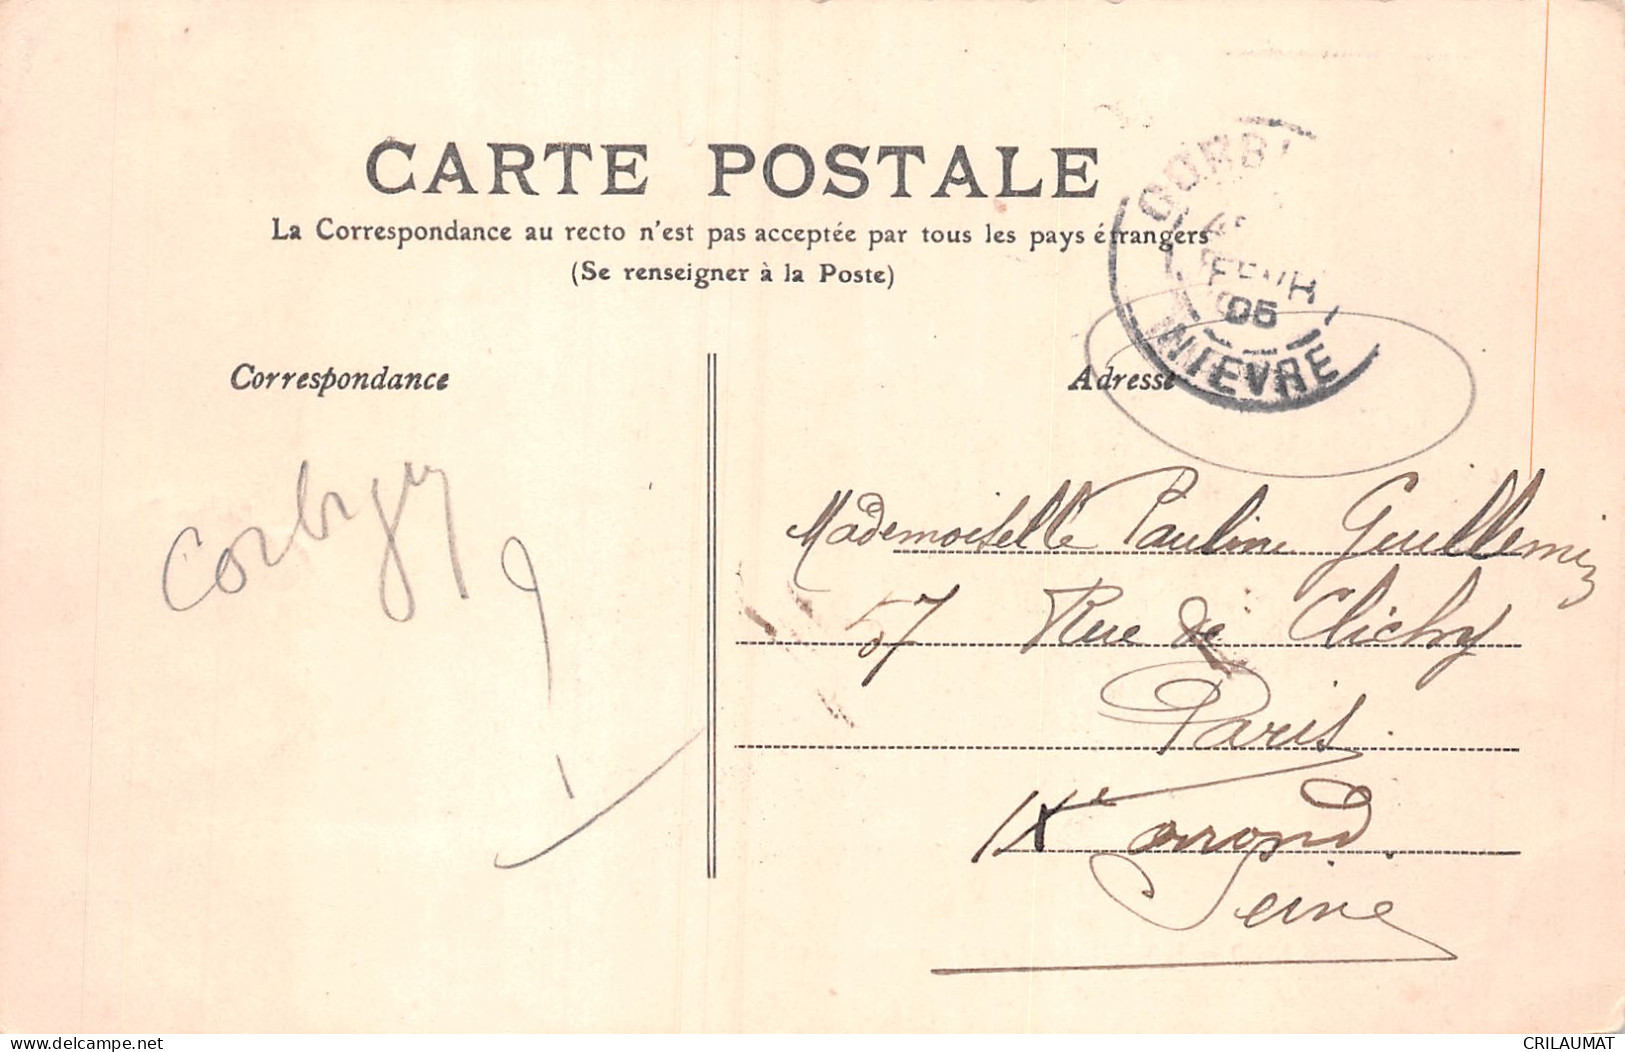 CARTE POSTALE
La Correspondance au recto n'est pas acceptée par tous les pays étrangers
(Se renseigner à la Poste)
05
NIEVRE
Correspondance
Adresse
Corbigny
Mademoiselle Pauline Guillemin
57 Rue de Clichy
Paris
IXe arrond.
Seine
delcampe.net
CRILAUMAT